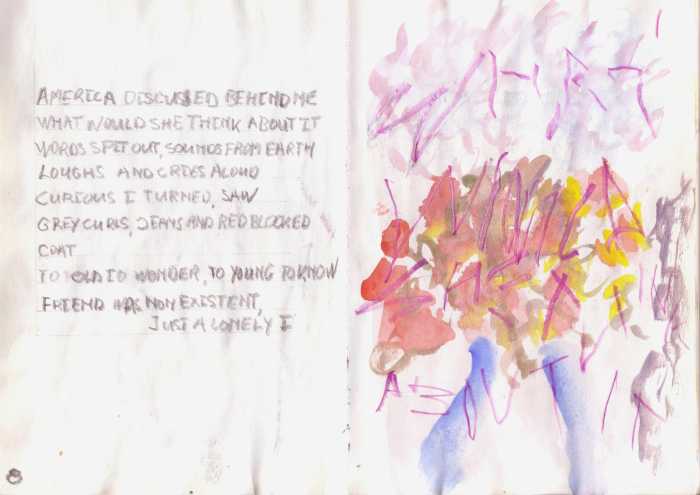 AMERICA DISCUSSED BEHIND ME
WHAT WOULD SHE THINK ABOUT IT
WORDS SPIT OUT, SOUNDS FROM EARTH
LOUGHS AND CRIES ALOUD
CURIOUS I TURNED, SAW
GREY CURLS, JEANS AND RED BLOCKED
COAT
TO OLD TO WONDER, TO YOUNG TO KNOW
FRIEND WAS NON EXISTENT,
JUST A LONELY I
WHAT